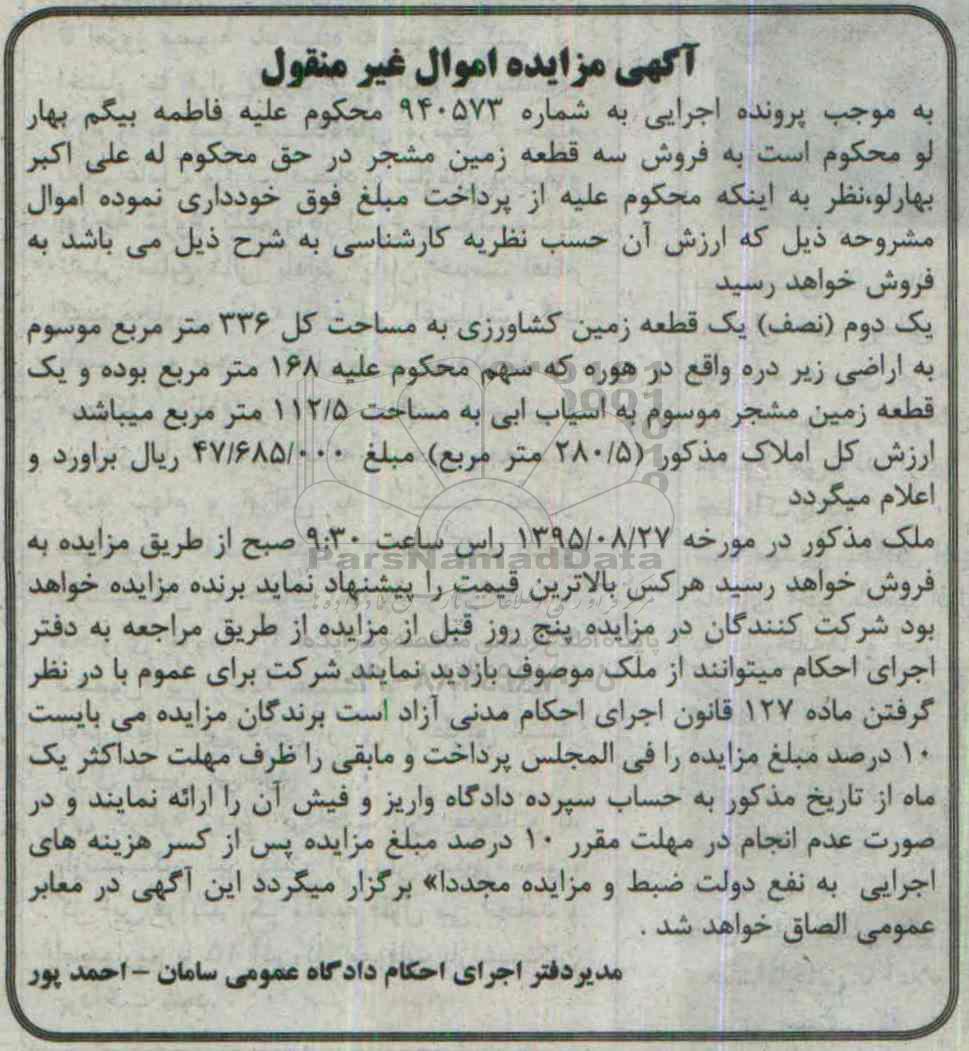 آگهی مزایده اموال غیر منقول
به موجب پرونده اجرایی به شماره ۹۴۰۵۷۳ محکوم علیه فاطمه بیگم بهار
لو محکوم است به فروش سه قطعه زمین مشجر در حق محکوم له علی اکبر
بهارلو،نظر به اینکه محکوم علیه از پرداخت مبلغ فوق خودداری نموده اموال
مشروحه ذیل که ارزش آن حسب نظریه کارشناسی به شرح ذیل می باشد به
فروش خواهد رسید
یک دوم (نصف) یک قطعه زمین کشاورزی به مساحت کل ۳۳۶ متر مربع موسوم
به اراضی زیر دره واقع در هوره که سهم محکوم علیه ۱۶۸ متر مربع بوده و یک
قطعه زمین مشجر موسوم به اسیاب ابی به مساحت ۱۱۲/۵ متر مربع میباشد
ارزش کل املاک مذکور (۲۸۰/۵ متر مربع) مبلغ ۴۷/۶۸۵/۰۰۰ ریال براورد و
اعلام میگردد
ملک مذکور در مورخه ۱۳۹۵/۰۸/۲۷ راس ساعت ۹:۳۰ صبح از طریق مزایده به
فروش خواهد رسید هرکس بالاترین قیمت را پیشنهاد نماید برنده مزایده خواهد
بود شرکت کنندگان در مزایده پنج روز قبل از مزایده از طریق مراجعه به دفتر
اجرای احکام میتوانند از ملک موصوف بازدید نمایند شرکت برای عموم با در نظر
گرفتن ماده ۱۲۷ قانون اجرای احکام مدنی آزاد است برندگان مزایده می بایست
۱۰ درصد مبلغ مزایده را فی المجلس پرداخت و مابقی را ظرف مهلت حداکثر یک
ماه از تاریخ مذکور به حساب سپرده دادگاه واریز و فیش آن را ارائه نمایند و در
صورت عدم انجام در مهلت مقرر ۱۰ درصد مبلغ مزایده پس از کسر هزینه های
اجرایی به نفع دولت ضبط و مزایده مجددا» برگزار میگردد این آگهی در معابر
عمومی الصاق خواهد شد .
مدیردفتر اجرای احکام دادگاه عمومی سامان - احمد پور
ParsNamadData